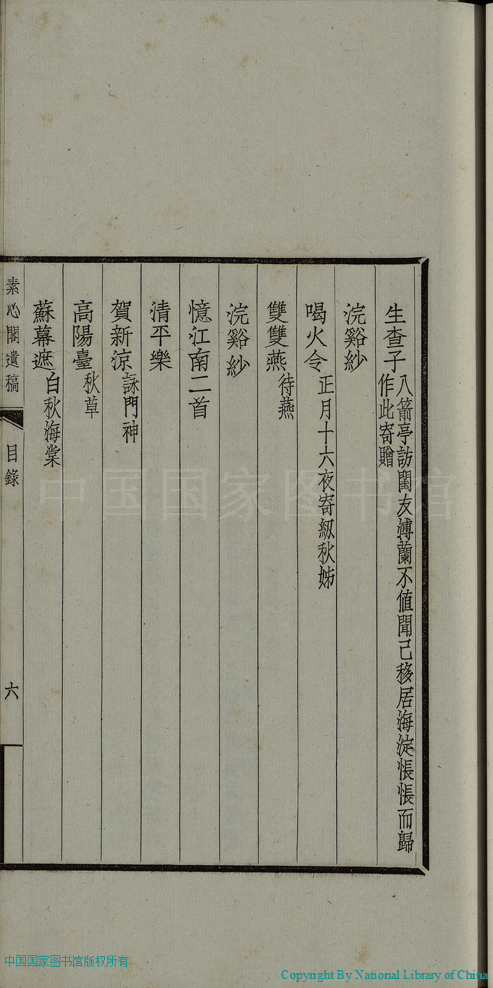 生查子八箭亭訪閨友漙蘭不值聞已移居海淀悵悵而歸
作此寄贈
浣谿紗
喝火令正月十六夜寄紉秋姊
雙雙燕待燕
浣谿紗
憶江南二首
清平樂
賀新涼詠門神
高陽臺秋草
蘇幕遮白秋海棠
素心閣遺稿
目錄
六
中国国家图书馆
中国国家图书馆版权所有
Copyright By National Library of China